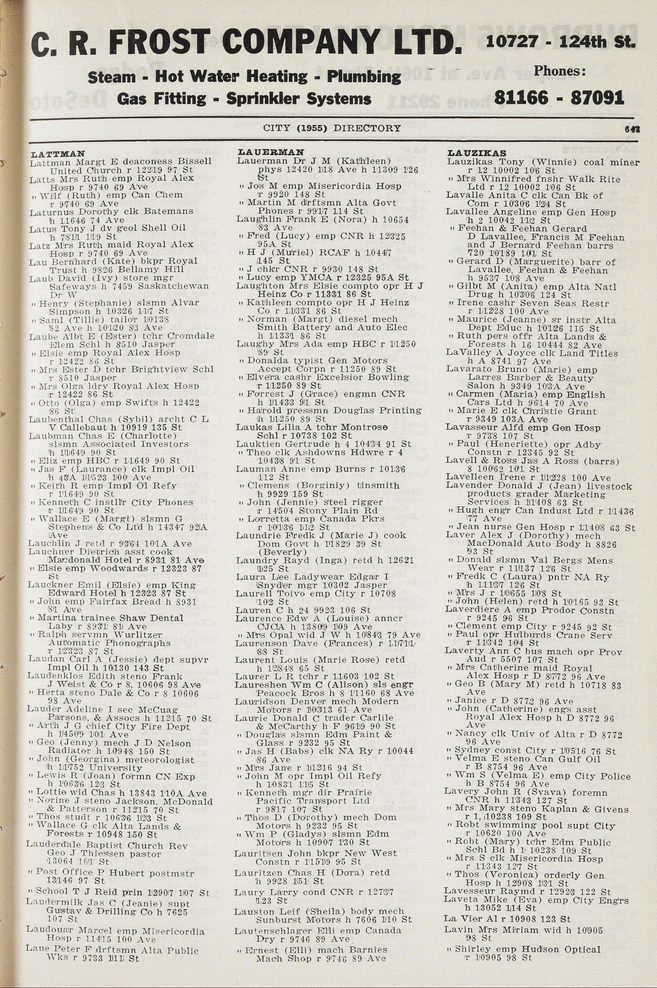 C. R. FROST COMPANY LTD.
10727 - 124th St.
Steam - Hot Water Heating - Plumbing
Phones:
Gas Fitting - Sprinkler Systems
81166 - 87091
CITY (1955) DIRECTORY
LATTMAN
Lattman Margt E deaconess Bissell
United Church r 12219 97 St
Latts Mrs Ruth emp Royal Alex
Hosp r 9740 69 Ave
" Wilf (Ruth) emp Can Chem
r 9740 69 Ave
Laturnus Dorothy clk Batemans
h 11646 74 Ave
Latus Tony J dv geol Shell Oil
h 7811 119 St
Latz Mrs Ruth maid Royal Alex
Hosp r 9740 69 Ave
Lau Bernhard (Kate) bkpr Royal
Trust h 9826 Bellamy Hill
Laub David (Ivy) store mgr
Safeways h 7459 Saskatchewan
Dr W
" Henry (Stephanie) slsmn Alvar
Simpson h 10326 117 St
" Saml (Tillie) tailor 10138
82 Ave h 10120 83 Ave
Laube Albt E (Ester) tchr Cromdale
Elem Schl h 8510 Jasper
" Elsie emp Royal Alex Hosp
r 12422 86 St
" Mrs Ester D tchr Brightview Schl
r 8510 Jasper
" Mrs Olga ldry Royal Alex Hosp
r 12422 86 St
" Otto (Olga) emp Swifts h 12422
86 St
Laubenthal Chas (Sybil) archt C L
V Callebaut h 10919 135 St
Laubman Chas E (Charlotte)
slsmn Associated Investors
h 11649 90 St
" Eliz emp HBC r 11649 90 St
" Jas F (Laurance) clk Impl Oil
h 42A 11523 100 Ave
" Keith R emp Impl Ol Refy
r 11649 90 St
" Kenneth C instllr City Phones
r 11649 90 St
" Wallace E (Margt) slsmn G
Stephens & Co Ltd h 14347 92A
Ave
Lauchlin J retd r 9364 101A Ave
Lauchner Dietrich asst cook
Macdonald Hotel r 8931 81 Ave
" Elsie emp Woodwards r 12323 87
St
Lauckner Emil (Elsie) emp King
Edward Hotel h 12323 87 St
" John emp Fairfax Bread h 8931
81 Ave
" Martina trainee Shaw Dental
Laby r 8931 81 Ave
" Ralph servmn Wurlitzer
Automatic Phonographs
r 12323 87 St
Laudan Carl A (Jessie) dept supvr
Impl Oil h 10130 143 St
Laudenklos Edith steno Frank
J Weist & Co r 8, 10606 98 Ave
" Herta steno Dale & Co r 8 10606
98 Ave
Lauder Adeline I sec McCuag
Parsons, & Assocs h 11215 70 St
" Arth J G chief City Fire Dept
h 14509 101 Ave
" Geo (Jenny) mech J D Nelson
Radiator h 10948 150 St
" John (Georgina) meteorologist
h 11752 University
" Lewis R (Joan) formn CN Exp
h 10636 123 St
" Lottie wid Chas h 13843 110A Ave
" Norine J steno Jackson, McDonald
& Patterson r 11215 70 St
" Thos studt r 10636 123 St
" Wallace G clk Alta Lands &
Forests r 10948 150 St
Lauderdale Baptist Church Rev
Geo J Thiessen pastor
13064 101 St
" Post Office P Hubert postmstr
13146 97 St
" School T J Reid prin 12907 107 St
Laudermilk Jas C (Jeanie) supt
Gustav & Drilling Co h 7625
107 St
Laudouar Marcel emp Misericordia
Hosp r 11415 100 Ave
Laue Peter F drftsmn Alta Public
Wks r 9733 111 St
LAUERMAN
Lauerman Dr J M (Kathleen)
phys 12420 118 Ave h 11309 126
St
" Jos M emp Misericordia Hosp
r 9920 148 St
" Martin M drftsmn Alta Govt
Phones r 9917 114 St
Laughlin Frank E (Nora) h 10654
83 Ave
" Fred (Lucy) emp CNR h 12325
95A St
" H J (Muriel) RCAF h 10447
145 St
" J chkr CNR r 9930 148 St
" Lucy emp YMCA r 12325 95A St
Laughton Mrs Elsie compto opr H J
Heinz Co r 11331 86 St
" Kathleen compto opr H J Heinz
Co r 11331 86 St
" Norman (Margt) diesel mech
Smith Battery and Auto Elec
h 11331 86 St
Laughy Mrs Ada emp HBC r 11250
89 St
" Donalda typist Gen Motors
Accept Corpn r 11250 89 St
" Elvera cashr Excelsior Bowling
r 11250 89 St
" Forrest J (Grace) engmn CNR
h 11433 91 St
" Harold pressmn Douglas Printing
h 11250 89 St
Laukas Lilia A tchr Montrose
Schl r 10738 102 St
Lauktien Gertrude h 4 10434 91 St
" Theo clk Ashdowns Hdwre r 4
10438 91 St
Lauman Anne emp Burns r 10136
112 St
" Clemens (Borginiy) tinsmith
h 9929 159 St
" John (Jennie) steel rigger
r 14504 Stony Plain Rd
" Lorretta emp Canada Pkrs
r 10136 112 St
Laundrie Fredk J (Marie J) cook
Dom Govt h 11829 39 St
(Beverly)
Laundry Rayd (Inga) retd h 12621
125 St
Laura Lee Ladywear Edgar I
Snyder mgr 10302 Jasper
Laurell Toivo emp City r 10708
102 St
Lauren C h 24 9923 106 St
Laurence Edw A (Louise) anncr
CJCA h 13809 109 Ave
" Mrs Opal wid J W h 10843 79 Ave
Laurenson Dave (Frances) r 11711
88 St
Laurent Louis (Marie Rose) retd
h 12848 65 St
Laurer L R tchr r 11603 102 St
Laureshen Wm C (Alison) sls engr
Peacock Bros h 8 11160 68 Ave
Lauridson Denver mech Modern
Motors r 10313 61 Ave
Laurie Donald C trader Carlile
& McCarthy h F 9619 90 St
" Douglas slsmn Edm Paint &
Glass r 9232 95 St
" Jas H (Babs) clk NA Ry r 10044
86 Ave
" Mrs Jane r 11216 94 St
" John M opr Impl Oil Refy
h 10831 115 St
" Kenneth mgr dir Prairie
Pacific Transport Ltd
r 9817 107 St
" Thos D (Dorothy) mech Dom
Motors h 9232 95 St
" Wm P (Gladys) slsmn Edm
Motors h 10907 130 St
Lauritsen John bkpr New West
Constn r 11519 95 St
Lauritzen Chas H (Dora) retd
h 9928 151 St
Laury Larry cond CNR r 12737
123 St
Lauston Leif (Sheila) body mech
Sunburst Motors h 7606 110 St
Lautenschlager Elli emp Canada
Dry r 9746 89 Ave
" Ernest (Elli) mach Barnies
Mach Shop r 9746 89 Ave
LAUZIKAS
Lauzikas Tony (Winnie) coal miner
r 12 10002 106 St
" Mrs Winnifred fnshr Walk Rite
Ltd r 12 10002 106 St
Lavalle Anita C clk Can Bk of
Com r 10306 124 St
Lavallee Angeline emp Gen Hosp
h 2 10042 112 St
" Feehan & Feehan Gerard
D Lavallee, Francis M Feehan
and J Bernard Feehan barrs
720 10189 101 St
" Gerard D (Marguerite) barr of
Lavallee, Feehan & Feehan
h 9537 108 Ave
" Gilbt M (Anita) emp Alta Natl
Drug h 10306 124 St
" Irene cashr Seven Seas Restr
r 11228 100 Ave
" Maurice (Jeanne) sr instr Alta
Dept Educ h 10126 115 St
" Ruth pers offr Alta Lands &
Forests h 16 10444 82 Ave
LaValley A Joyce clk Land Titles
h A 8741 97 Ave
Lavarato Bruno (Marie) emp
Larres Barber & Beauty
Salon h 9349 103A Ave
" Carmen (Maria) emp English
Cars Ltd h 9614 70 Ave
" Marie E clk Christie Grant
r 9349 103A Ave
Lavasseur Alfd emp Gen Hosp
r 9738 107 St
" Paul (Henriette) opr Adby
Constn r 12345 92 St
Lavell & Ross Jas A Ross (barrs)
8 10062 101 St
Lavelleen Irene r 11228 100 Ave
Lavender Donald J (Jean) livestock
products grader Marketing
Services h 11408 63 St
" Hugh engr Can Indust Ltd r 11436
77 Ave
" Jean nurse Gen Hosp r 11408 63 St
Laver Alex J (Dorothy) mech
MacDonald Auto Body h 8826
93 St
" Donald slsmn Val Bergs Mens
Wear r 11137 126 St
" Fredk C (Laura) pntr NA Ry
h 11137 126 St
" Mrs J r 10655 108 St
" John (Helen) retd h 10165 93 St
Laverdiere A emp Prodor Constn
r 9245 96 St
" Clement emp City r 9245 92 St
" Paul opr Hulburds Crane Serv
r 11342 104 St
Laverty Ann C bus mach opr Prov
Aud r 5507 107 St
" Mrs Catherine maid Royal
Alex Hosp r D 8772 96 Ave
" Geo B (Mary M) retd h 10718 83
Ave
" Janice r D 8772 96 Ave
" John (Catherine) engs asst
Royal Alex Hosp h D 8772 96
Ave
" Nancy clk Univ of Alta r D 8772
96 Ave
" Sydney const City r 10516 76 St
" Velma E steno Can Gulf Oil
r B 8754 96 Ave
" Wm S (Velma E) emp City Police
h B 8754 96 Ave
Lavery John R (Svava) foremn
CNR h 11343 127 St
" Mrs Mary steno Kaplan & Givens
r 1, 10238 109 St
" Robt swimming pool supt City
r 10620 100 Ave
" Robt (Mary) tchr Edm Public
Schl Bd h 1 10238 109 St
" Mrs S clk Misericordia Hosp
r 11343 127 St
" Thos (Veronica) orderly Gen
Hosp h 12908 131 St
Lavesseur Raymd r 12923 122 St
Laveta Mike (Eva) emp City Engrs
h 13052 114 St
La Vier Al r 10908 123 St
Lavin Mrs Miriam wid h 10905
98 St
" Shirley emp Hudson Optical
r 10905 98 St